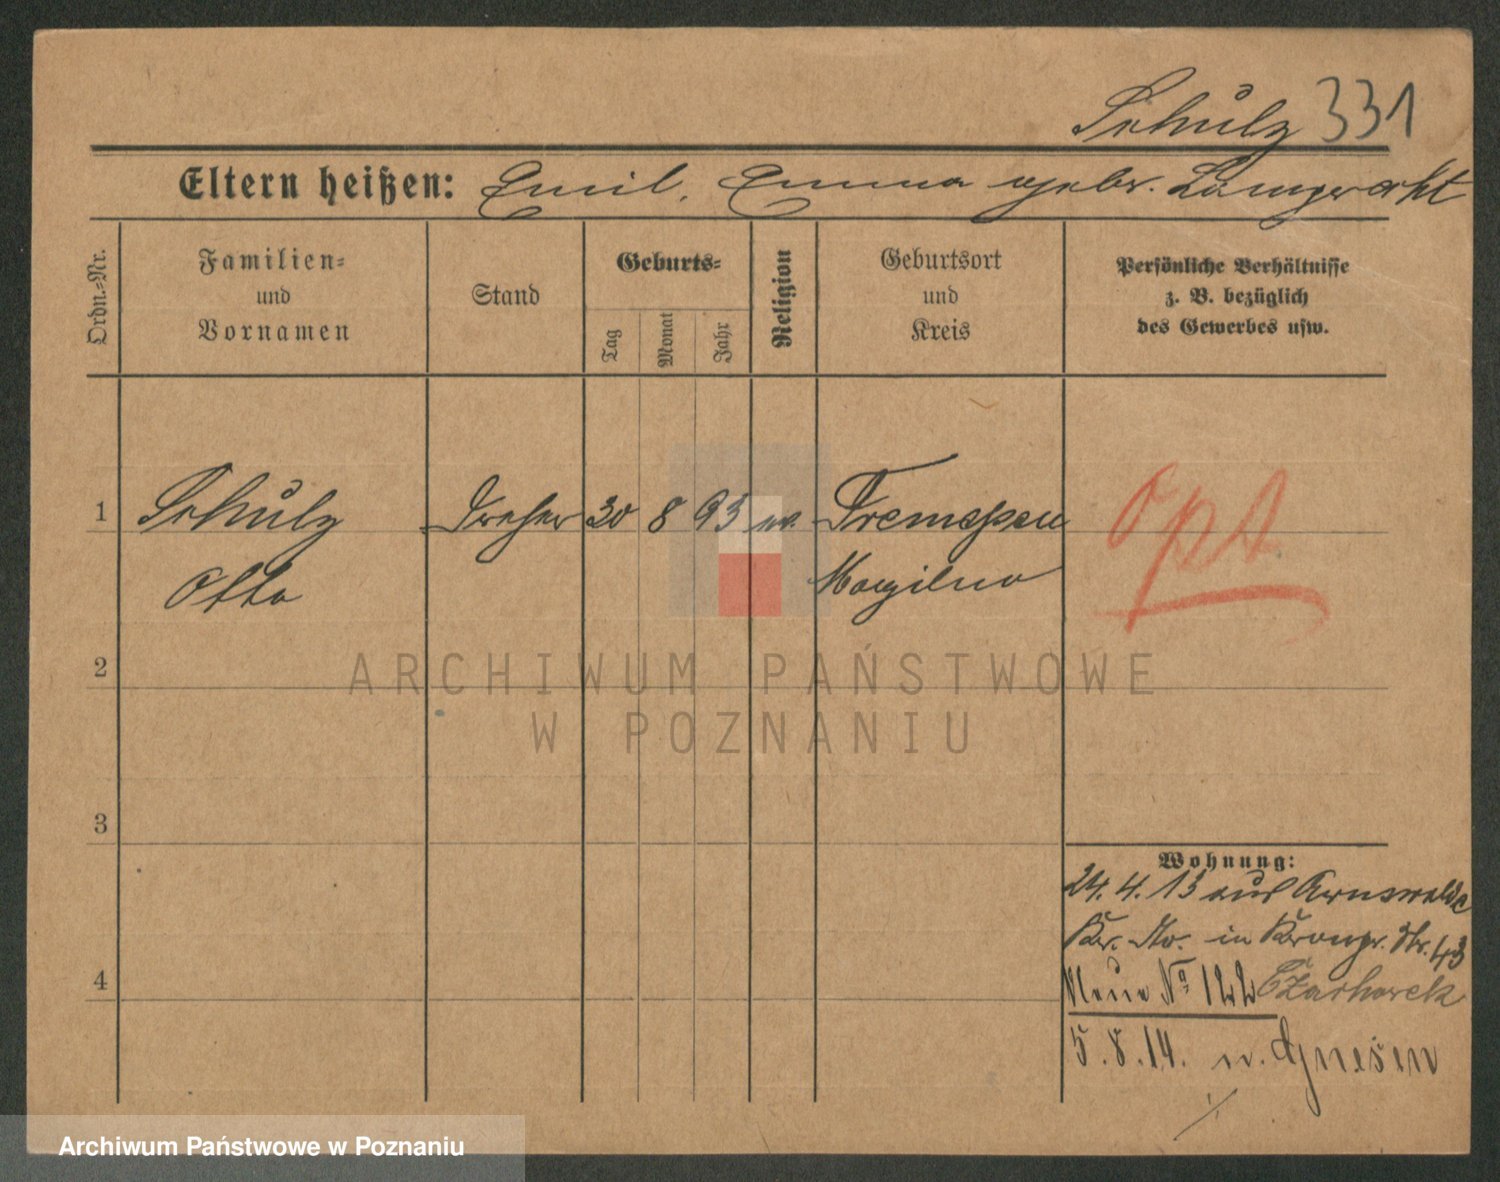 Schulz 331
Eltern heißen: Emil, Emma gebr. Langerecht
Ordn.-Nr.
Familien-
und
Vornamen
Stand
Geburts-
Tag
Monat
Jahr
Religion
Geburtsort
und
Kreis
Persönliche Verhältnisse
z. B. bezüglich
des Gewerbes usw.
1 Schulz Dreher 30 8 93 ev. Tremessen opt
Otto Mogilno
2
ARCHIWUM PAŃSTWOWE
W POZNANIU
3
Wohnung:
24. 4. 13 aus Arnswalde
in Kronpr. Str. 43
4
Neue No 122
5.8.14. n. Gnesen
Archiwum Państwowe w Poznaniu